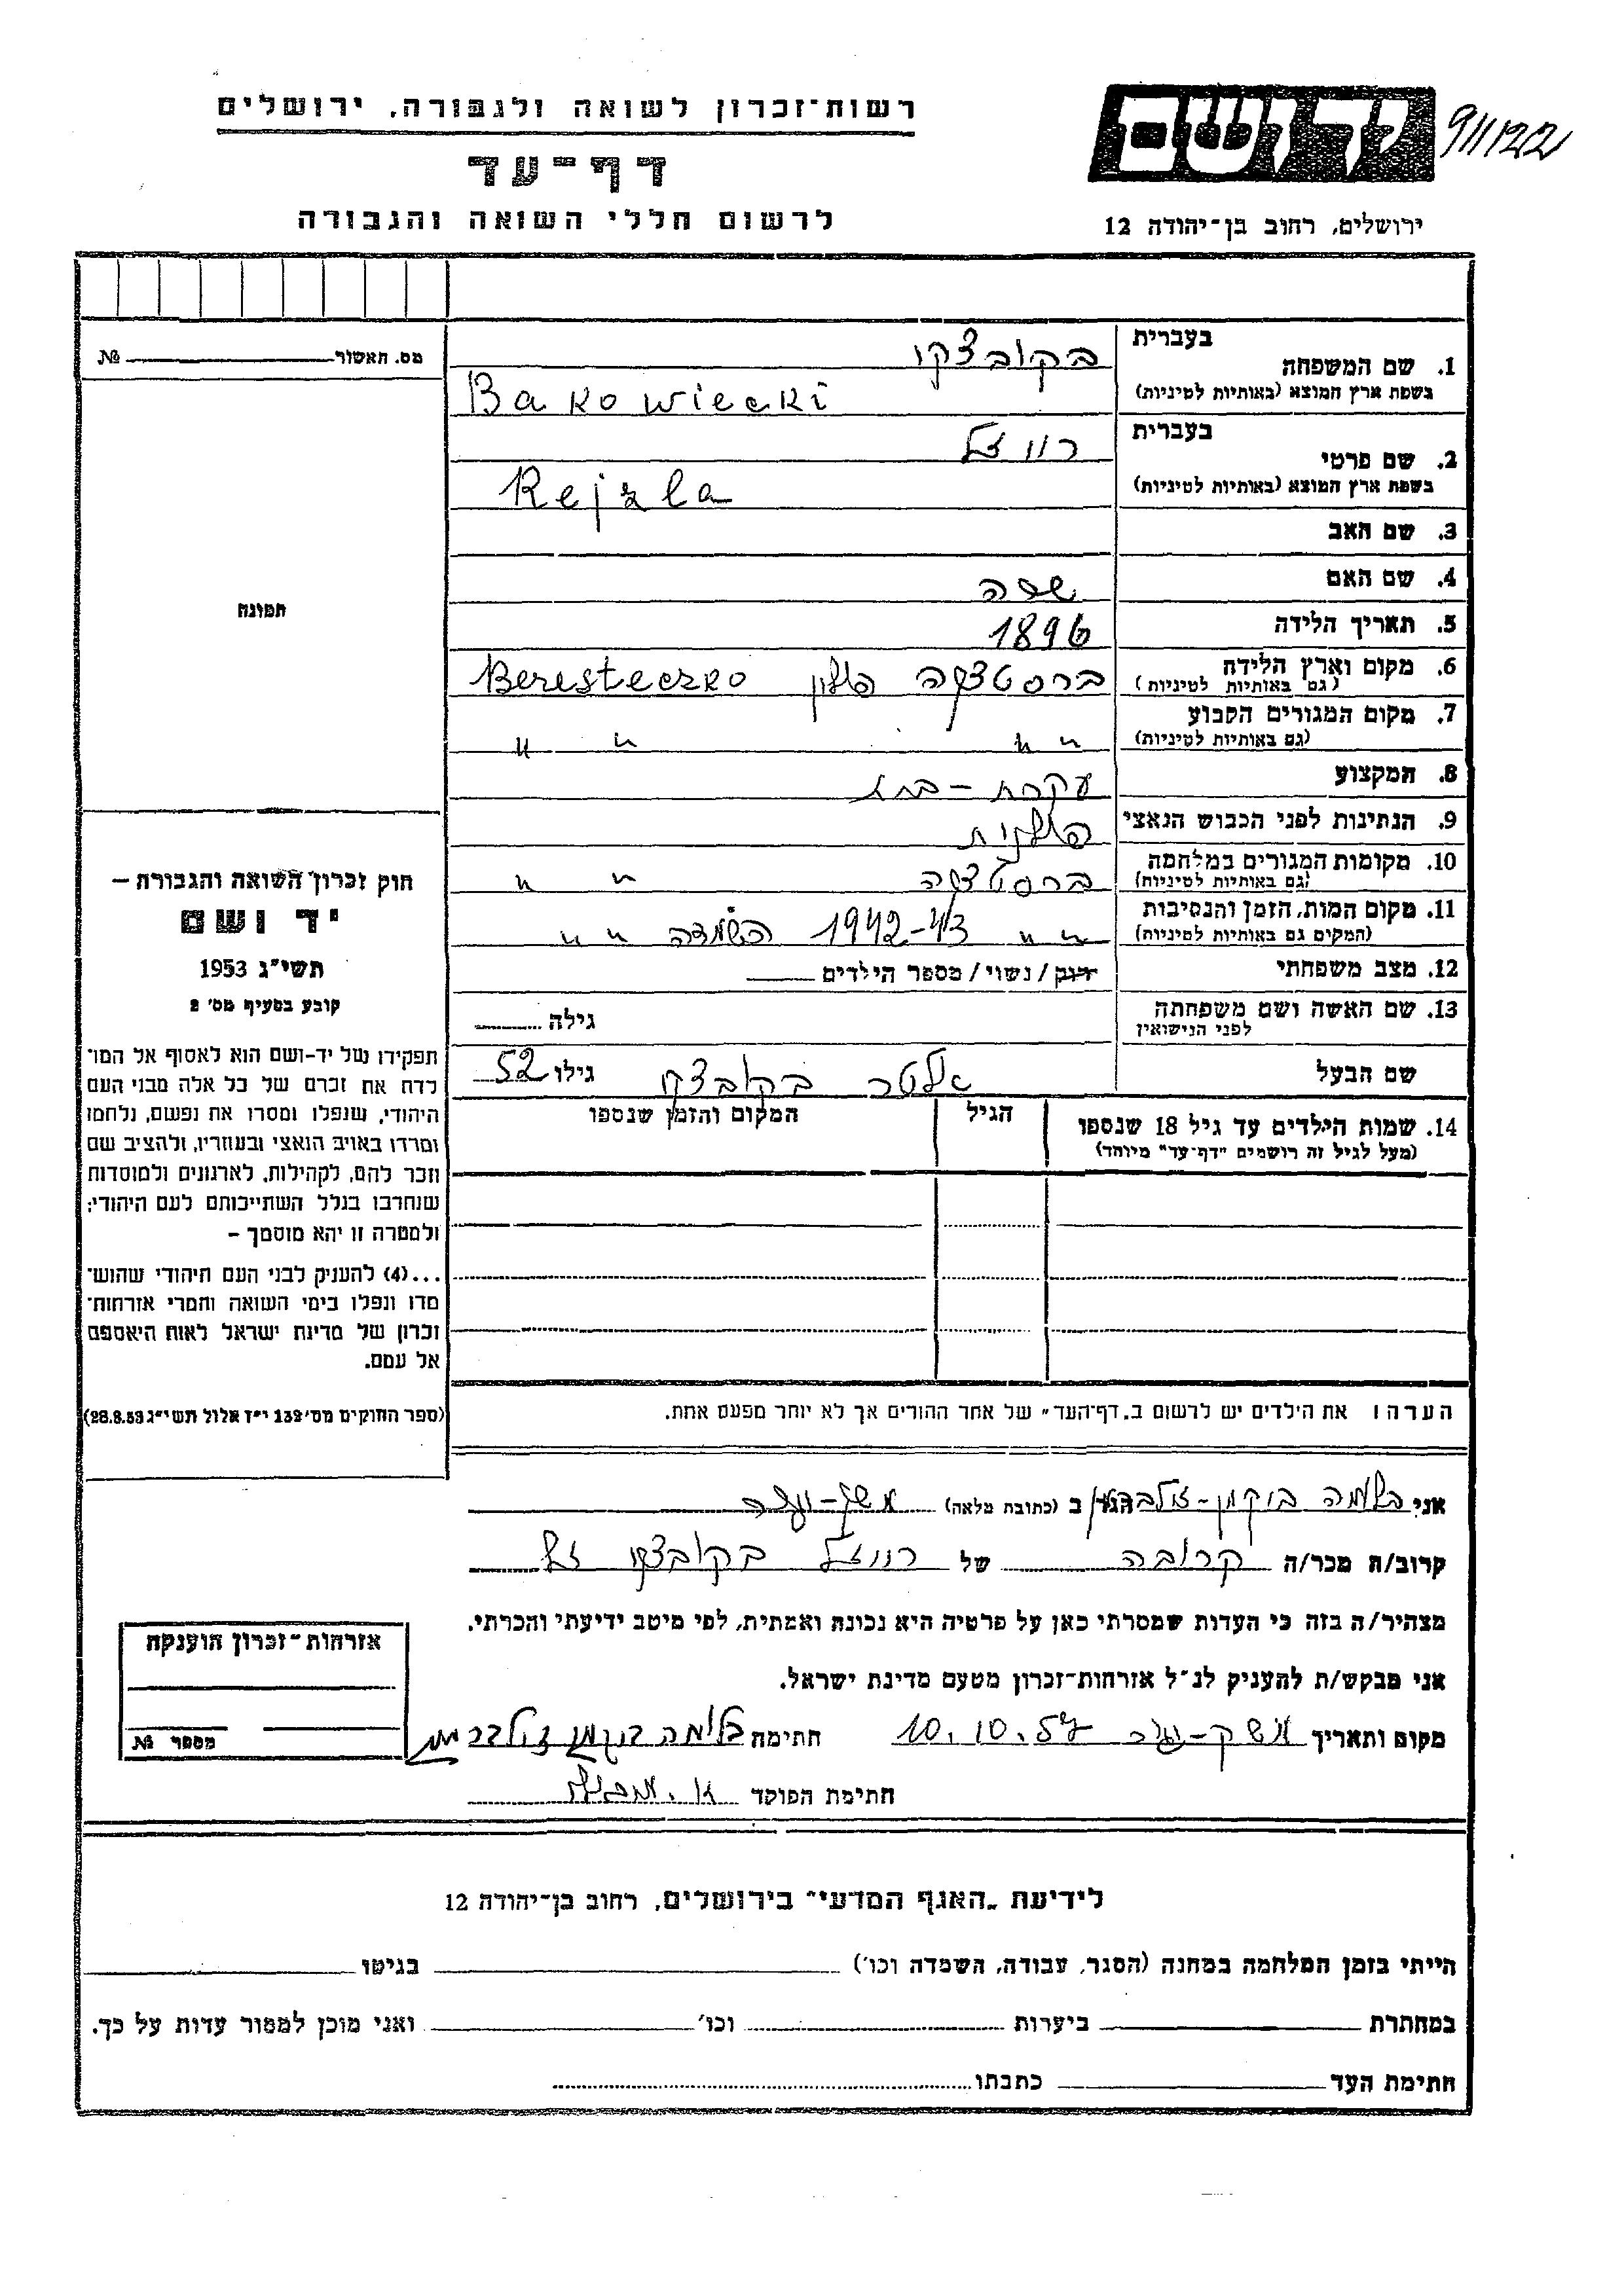 רשות-זכרון לשואה ולגבורה, ירושלים
דף-עד
לרשום חללי השואה והגבורה
יד ושם
911122
ירושלים, רחוב בן-יהודה 12
מס. האשור № 
תמונה
חוק זכרון השואה והגבורה –
יד ושם
תשי״ג 1953
קובע בסעיף מס׳ 2
תפקידו של יד-ושם הוא לאסוף אל המו־
לדת את זכרם של כל אלה מבני העם
היהודי, שנפלו ומסרו את נפשם, נלחמו
ומרדו באויב הנאצי ובעוזריו, ולהציב שם
וזכר להם, לקהילות, לארגונים ולמוסדות
שנחרבו בגלל השתייכותם לעם היהודי;
ולמטרה זו יהא מוסמך –
...(4) להעניק לבני העם היהודי שהוש־
מדו ונפלו בימי השואה והמרי אזרחות־
זכרון של מדינת ישראל לאות היאספם
אל עמם.
(ספר החוקים מס׳ 132 י״ז אלול תשי״ג 28.8.53)
1. שם המשפחה בעברית בקובצקי
בשפת ארץ המוצא (באותיות לטיניות) Bakowiecki
2. שם פרטי בעברית רייזל
בשפת ארץ המוצא (באותיות לטיניות) Rejzla
3. שם האב
4. שם האם
5. תאריך הלידה 1896
6. מקום וארץ הלידה ברסטצקה פולין Beresteczko
(גם באותיות לטיניות)
7. מקום המגורים הקבוע " " " "
(גם באותיות לטיניות)
8. המקצוע עקרת-בית
9. הנתינות לפני הכבוש הנאצי פולנית
10. מקומות המגורים במלחמה ברסטצקה " "
(גם באותיות לטיניות)
11. מקום המות, הזמן והנסיבות " " 1942-43 השמדה " "
(המקום גם באותיות לטיניות)
12. מצב משפחתי רווק/נשוי/מספר הילדים
13. שם האשה ושם משפחתה לפני הנישואין גילה
שם הבעל אלטר בקובצקי גילו 52
14. שמות הילדים עד גיל 18 שנספו הגיל המקום והזמן שנספו
(מעל לגיל זה רושמים "דף-עד" מיוחד)
הערה: את הילדים יש לרשום ב„דף-העד״ של אחד ההורים אך לא יותר מפעם אחת.
אני הגר/ן ב (כתובת מלאה)
קרוב/ה מכר/ה קרובה של רייזל בקובצקי ז"ל
מצהיר/ה בזה כי העדות שמסרתי כאן על פרטיה היא נכונה ואמתית, לפי מיטב ידיעתי והכרתי.
אני מבקש/ת להעניק לנ״ל אזרחות-זכרון מטעם מדינת ישראל.
מקום ותאריך 10.10.57 חתימה
חתימת הפוקד
אזרחות-זכרון הוענקה
מספר №
לידיעת „האגף המדעי״ בירושלים, רחוב בן-יהודה 12
הייתי בזמן המלחמה במחנה (הסגר, עבודה, השמדה וכו׳) בגיטו
במחתרת ביערות וכו׳ ואני מוכן למסור עדות על כך.
חתימת העד כתבתו